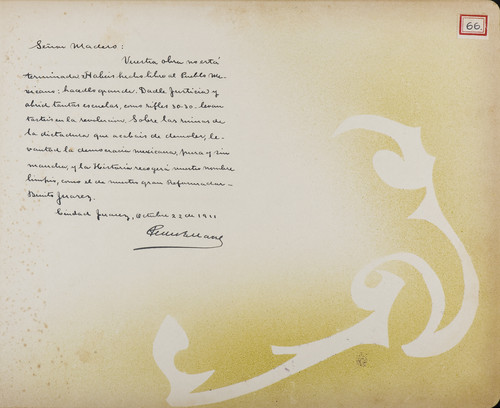 66.
Señor Madero:
Vuestra obra no está
terminada. Habeis hecho libre al Pueblo Me-
xicano: hacedlo grande. Dadle Justicia y
abrid tantas escuelas, como rifles 30-30 levan
tasteis en la revolucion. Sobre las ruinas de
la dictadura que acabais de demoler, le-
vantad la democracia mexicana, pura y sin
mancha, y la Historia recogerá vuestro nombre
limpio, como el de nuestro gran Reformador-
Benito Juarez.
Ciudad Juarez, Octubre 22 de 1911